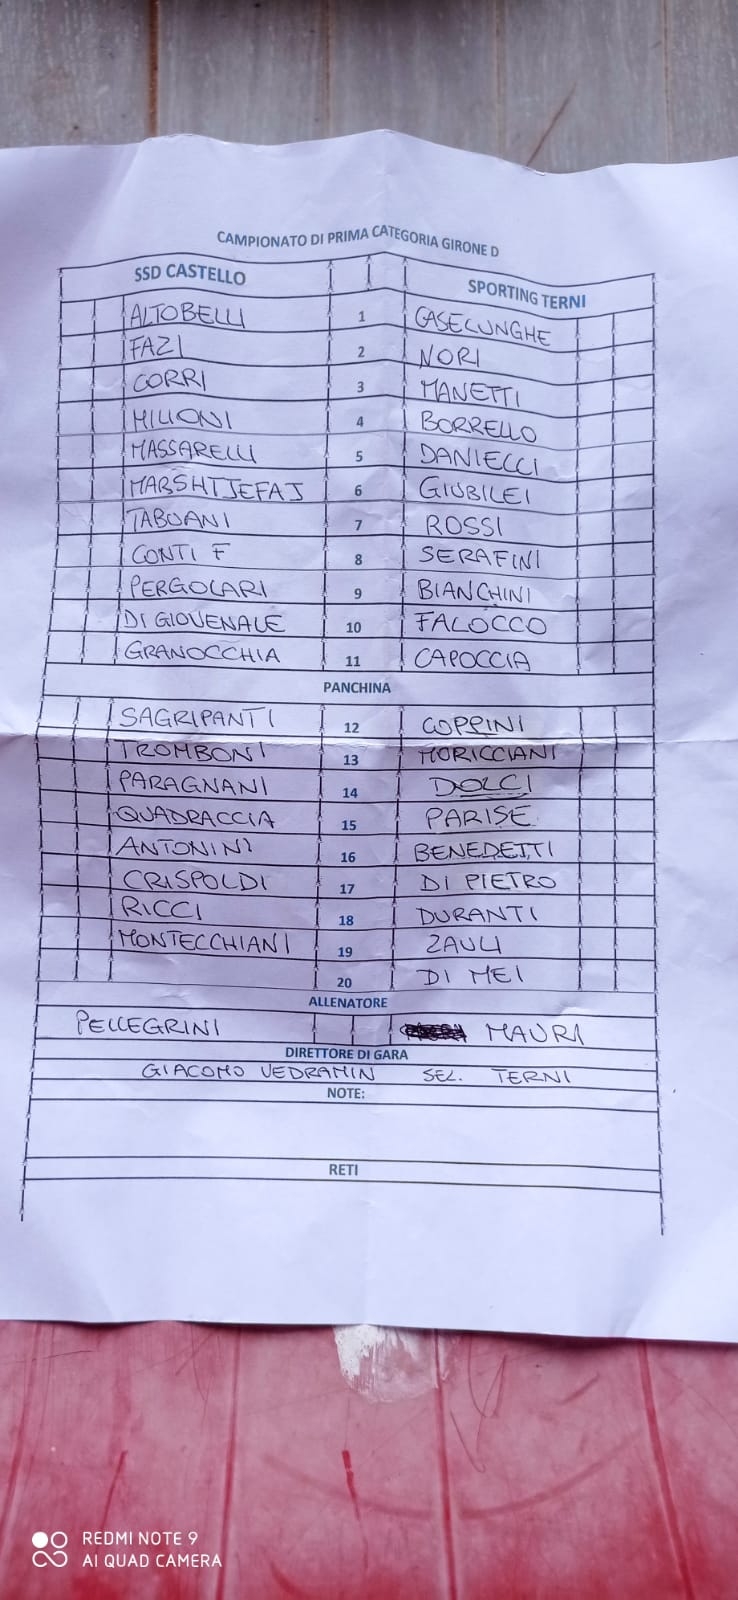 CAMPIONATO DI PRIMA CATEGORIA GIRONE D
SSD CASTELLO SPORTING TERNI
ALTOBELLI 1 CASECUNGHE
FAZI 2 NORI
CORRI 3 MANETTI
MILIONI 4 BORRELLO
MASSARELLI 5 DANIELLI
MARSHTJEFAJ 6 GIUBILEI
TABUANI 7 ROSSI
CONTI F 8 SERAFINI
PERGOLARI 9 BIANCHINI
DI GIOVENALE 10 FALOCCO
GRANOCCHIA 11 CAPOCCIA
PANCHINA
SAGRIPANTI 12 COPPINI
TROMBONI 13 MORICCIANI
PARAGNANI 14 DOLCI
QUADRACCIA 15 PARISE
ANTONINI 16 BENEDETTI
CRISPOLDI 17 DI PIETRO
RICCI 18 DURANTI
MONTECCHIANI 19 ZAULI
20 DI MEI
ALLENATORE
PELLEGRINI MAURI
DIRETTORE DI GARA
GIACOMO VEDRAMIN SEZ. TERNI
NOTE:
RETI
REDMI NOTE 9
AI QUAD CAMERA